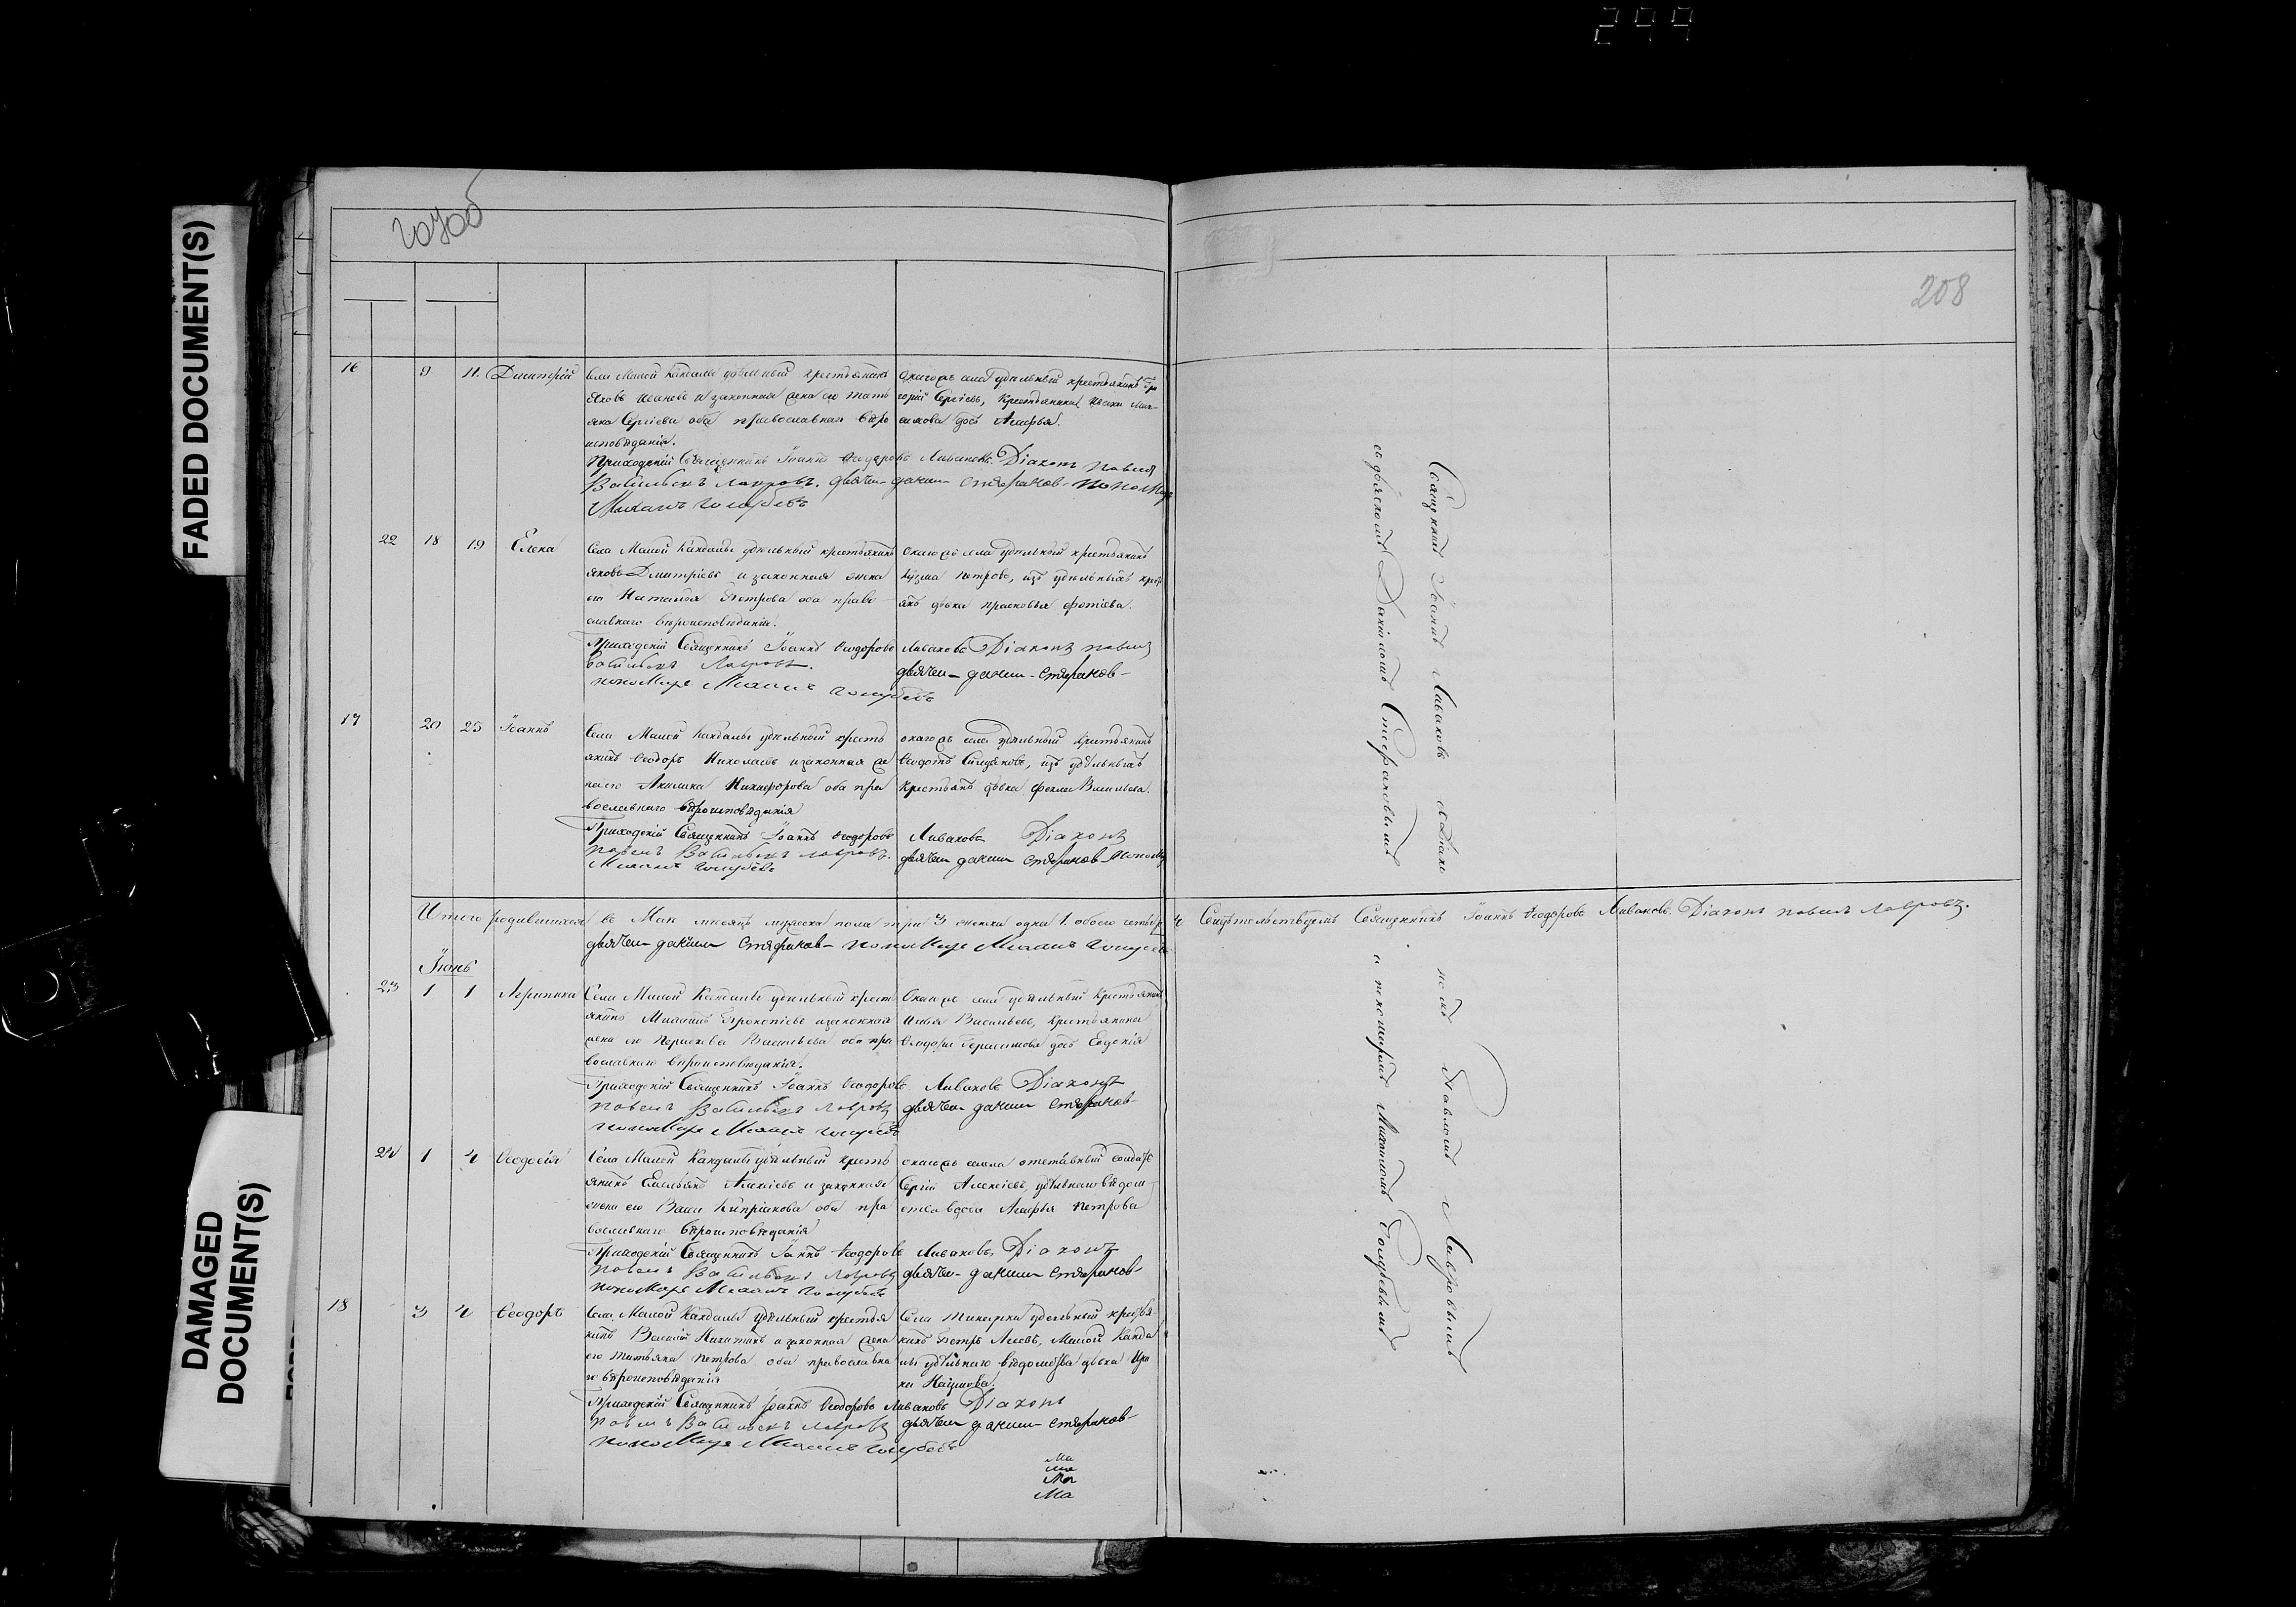 299
207об
208
FADED DOCUMENT(S)
DAMAGED DOCUMENT(S)
16 9 11. Димитрій Села Малой Кандалы удѣльный крестьянинъ
Яковъ Ивановъ и законная жена его Тать
яна Сергіева оба православнаго вѣро
исповѣданія.
Онагожъ села удѣльный крестьянинъ Гри
горій Сергіевъ, Крестьянина Ивана Мак
симова дочь Агафья.
Приходскій Священникъ Іоаннъ Ѳеодоровъ Ливановъ. Діаконъ Павелъ
Васильевъ Лавровъ. дьячекъ данилъ Стафановъ пономарь
Михаилъ Голубевъ
22 18 19 Елена Села Малой Кандалы удѣльный крестьянинъ
Яковъ Дмитріевъ и законная жена
его Наталья Петрова оба право
славнаго вѣроисповѣданія.
онагожъ села удѣльный крестьянинъ
Кузма Петровъ, изъ удѣльныхъ крест
янъ дѣвка Прасковья Фотіева.
Приходскій Священникъ Іоаннъ Ѳеодоровъ Ливановъ Діаконъ Павелъ
Васильевъ Лавровъ. дьячекъ данилъ Стафановъ
пономарь Михаилъ Голубевъ
17 20 25 Іоаннъ Села Малой Кандалы удѣльный кресть
янинъ Ѳеодоръ Николаевъ и законная же
на его Акилина Никифорова оба пра
вославнаго вѣроисповѣданія
онагожъ села удѣльный крестьянинъ
Ѳеодотъ, изъ удѣльныхъ
крестьянъ дѣвка Фекла Васильева.
Приходскій Священникъ Іоаннъ Ѳеодоровъ Ливановъ Діаконъ
Павелъ Васильевъ Лавровъ. дьячекъ данилъ Стафановъ пономарь
Михаилъ Голубевъ
Итого родившихся въ Маи месяцѣ мужеска пола три 3 женска одна 1. обоего четыре 4 Свидѣтельствуемъ Священникъ Іоаннъ Ѳеодоровъ Ливановъ. Діаконъ Павелъ Лавровъ.
дьячекъ данилъ Стафановъ пономарь Михаилъ Голубевъ
Іюнь
23 1 1 Села Малой Кандалы удѣльный кресть
янинъ Михаилъ Прокопіевъ и законная
жена его Васильева оба пра
вославнаго вѣроисповѣданія.
Онагожъ села удѣльный Крестьянинъ
Илья Васильевъ, крестьянина
Ѳеодора Герасимова дочь Евдокія
Приходскій Священникъ Іоаннъ Ѳеодоровъ Ливановъ Діаконъ
Павелъ Васильевъ Лавровъ дьячекъ данилъ Стафановъ
пономарь Михаилъ Голубевъ
24 1 4 Ѳеодосія Села Малой Кандалы удѣльный кресть
янинъ Емельянъ Алексіевъ и законная
жена его Васса Кипріанова оба пра
вославнаго вѣроисповѣданія
онагожъ села отставный солдатъ
Сергій Алексіевъ, удѣльнаго вѣдом
ства вдова Агафья Петрова
Приходскій Священникъ Іоаннъ Ѳеодоровъ Ливановъ, Діаконъ
Павелъ Васильевъ Лавровъ дьячекъ данилъ Стафановъ
пономарь Михаилъ Голубевъ
18 3 4 Ѳеодоръ Села Малой Кандалы удѣльный крестья
нинъ Василій Никитинъ и законная жена
его Татьяна Петрова оба православна
го вѣроисповѣданія
Села удѣльный крестья
нинъ Петръ, Малой Канда
лы удѣльнаго вѣдомства дѣвка Ири
на Наумова.
Приходскій Священникъ Іоаннъ Ѳеодоровъ Ливановъ Діаконъ
Павелъ Васильевъ Лавровъ дьячекъ данилъ Стафановъ
пономарь Михаилъ Голубевъ
Ма
Ма
Ма
Священникъ Іоаннъ Ливановъ съ Діако
номъ Павломъ Лавровымъ
съ дьячкомъ Даніиломъ Стафановымъ
и пономаремъ Михаиломъ Голубевымъ